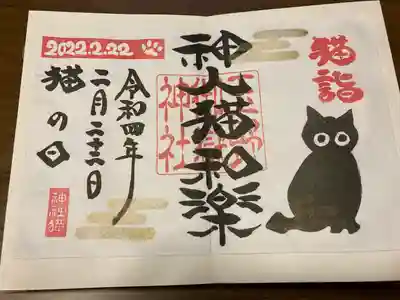 猫詣
神人猫和楽
2022.2.22
令和四年
二月二十二日
猫の日
神社